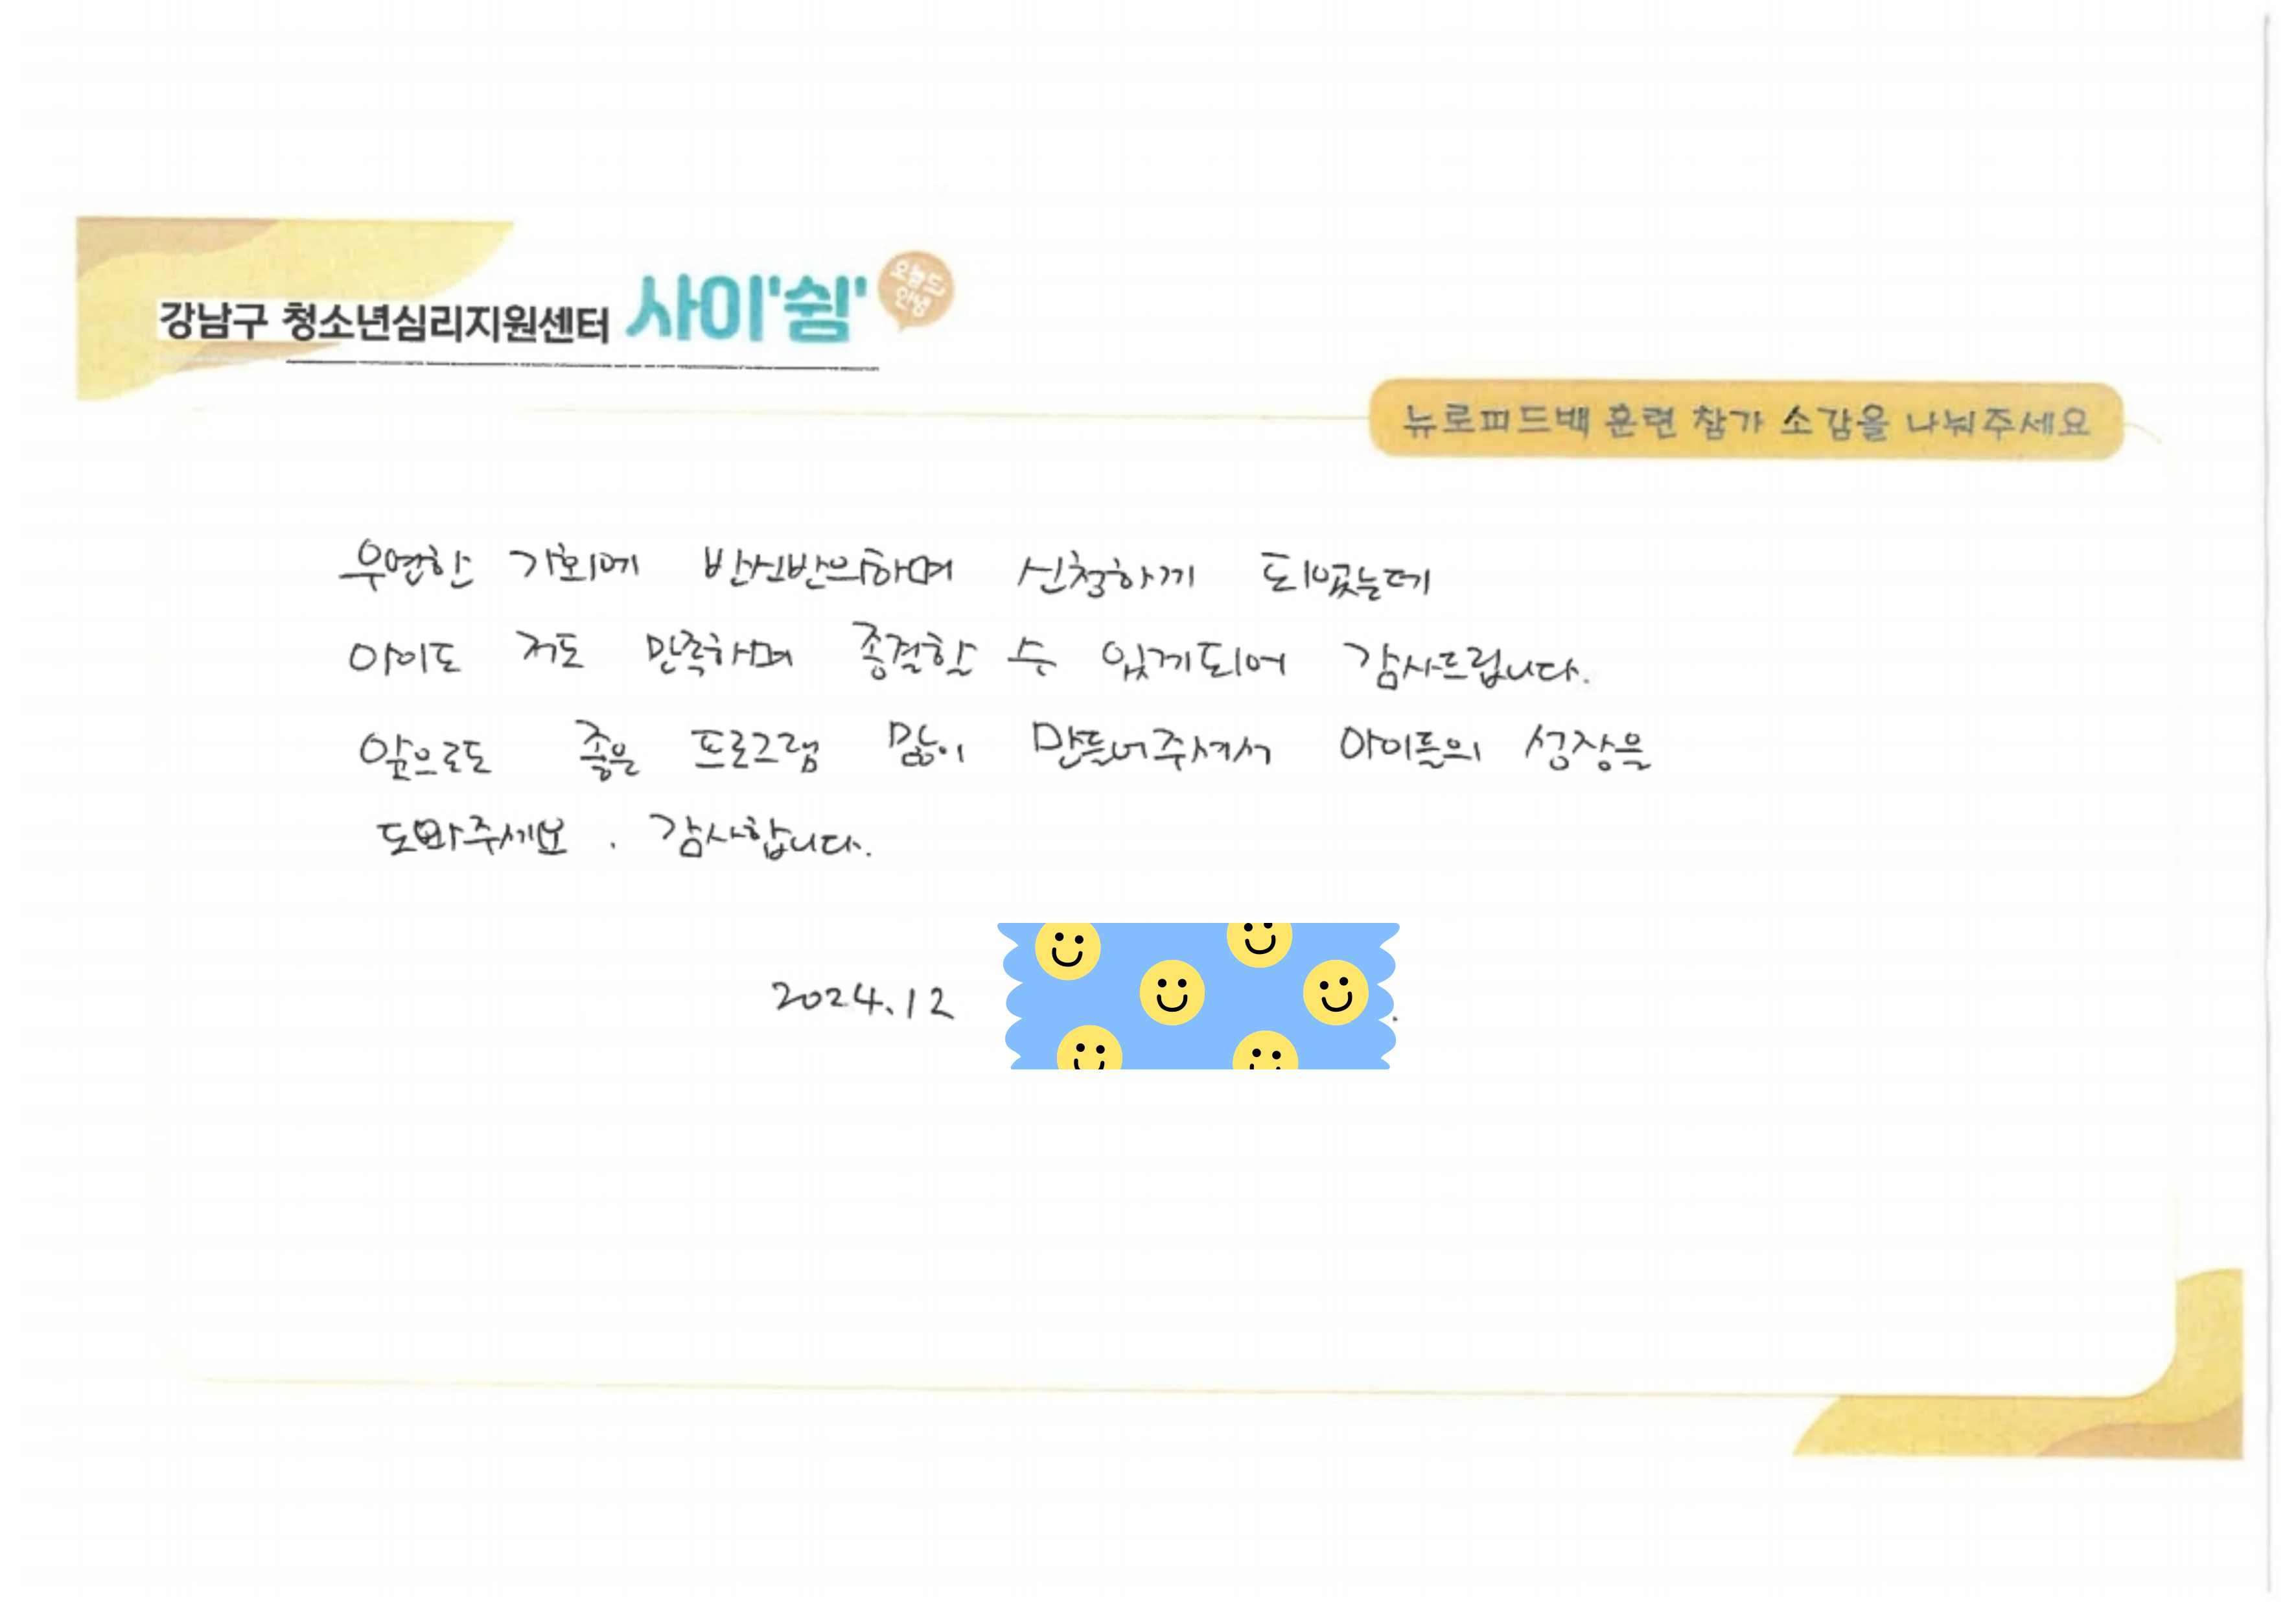 강남구 청소년심리지원센터 사이'쉼' 오늘도 안녕
뉴로피드백 훈련 참가 소감을 나눠주세요
우연한 기회에 반신반의하며 신청하게 되었는데
아이도 저도 만족하며 종결할 수 있게되어 감사드립니다.
앞으로도 좋은 프로그램 많이 만들어주셔서 아이들의 성장을
도와주세요. 감사합니다.
2024.12